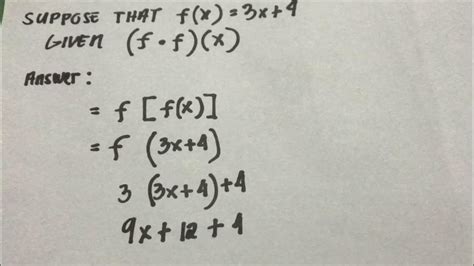 SUPPOSE THAT f(x) = 3x+4
GIVEN (f • f)(x)
Answer:
= f [f(x)]
= f (3x+4)
3 (3x+4)+4
9x + 12 + 4